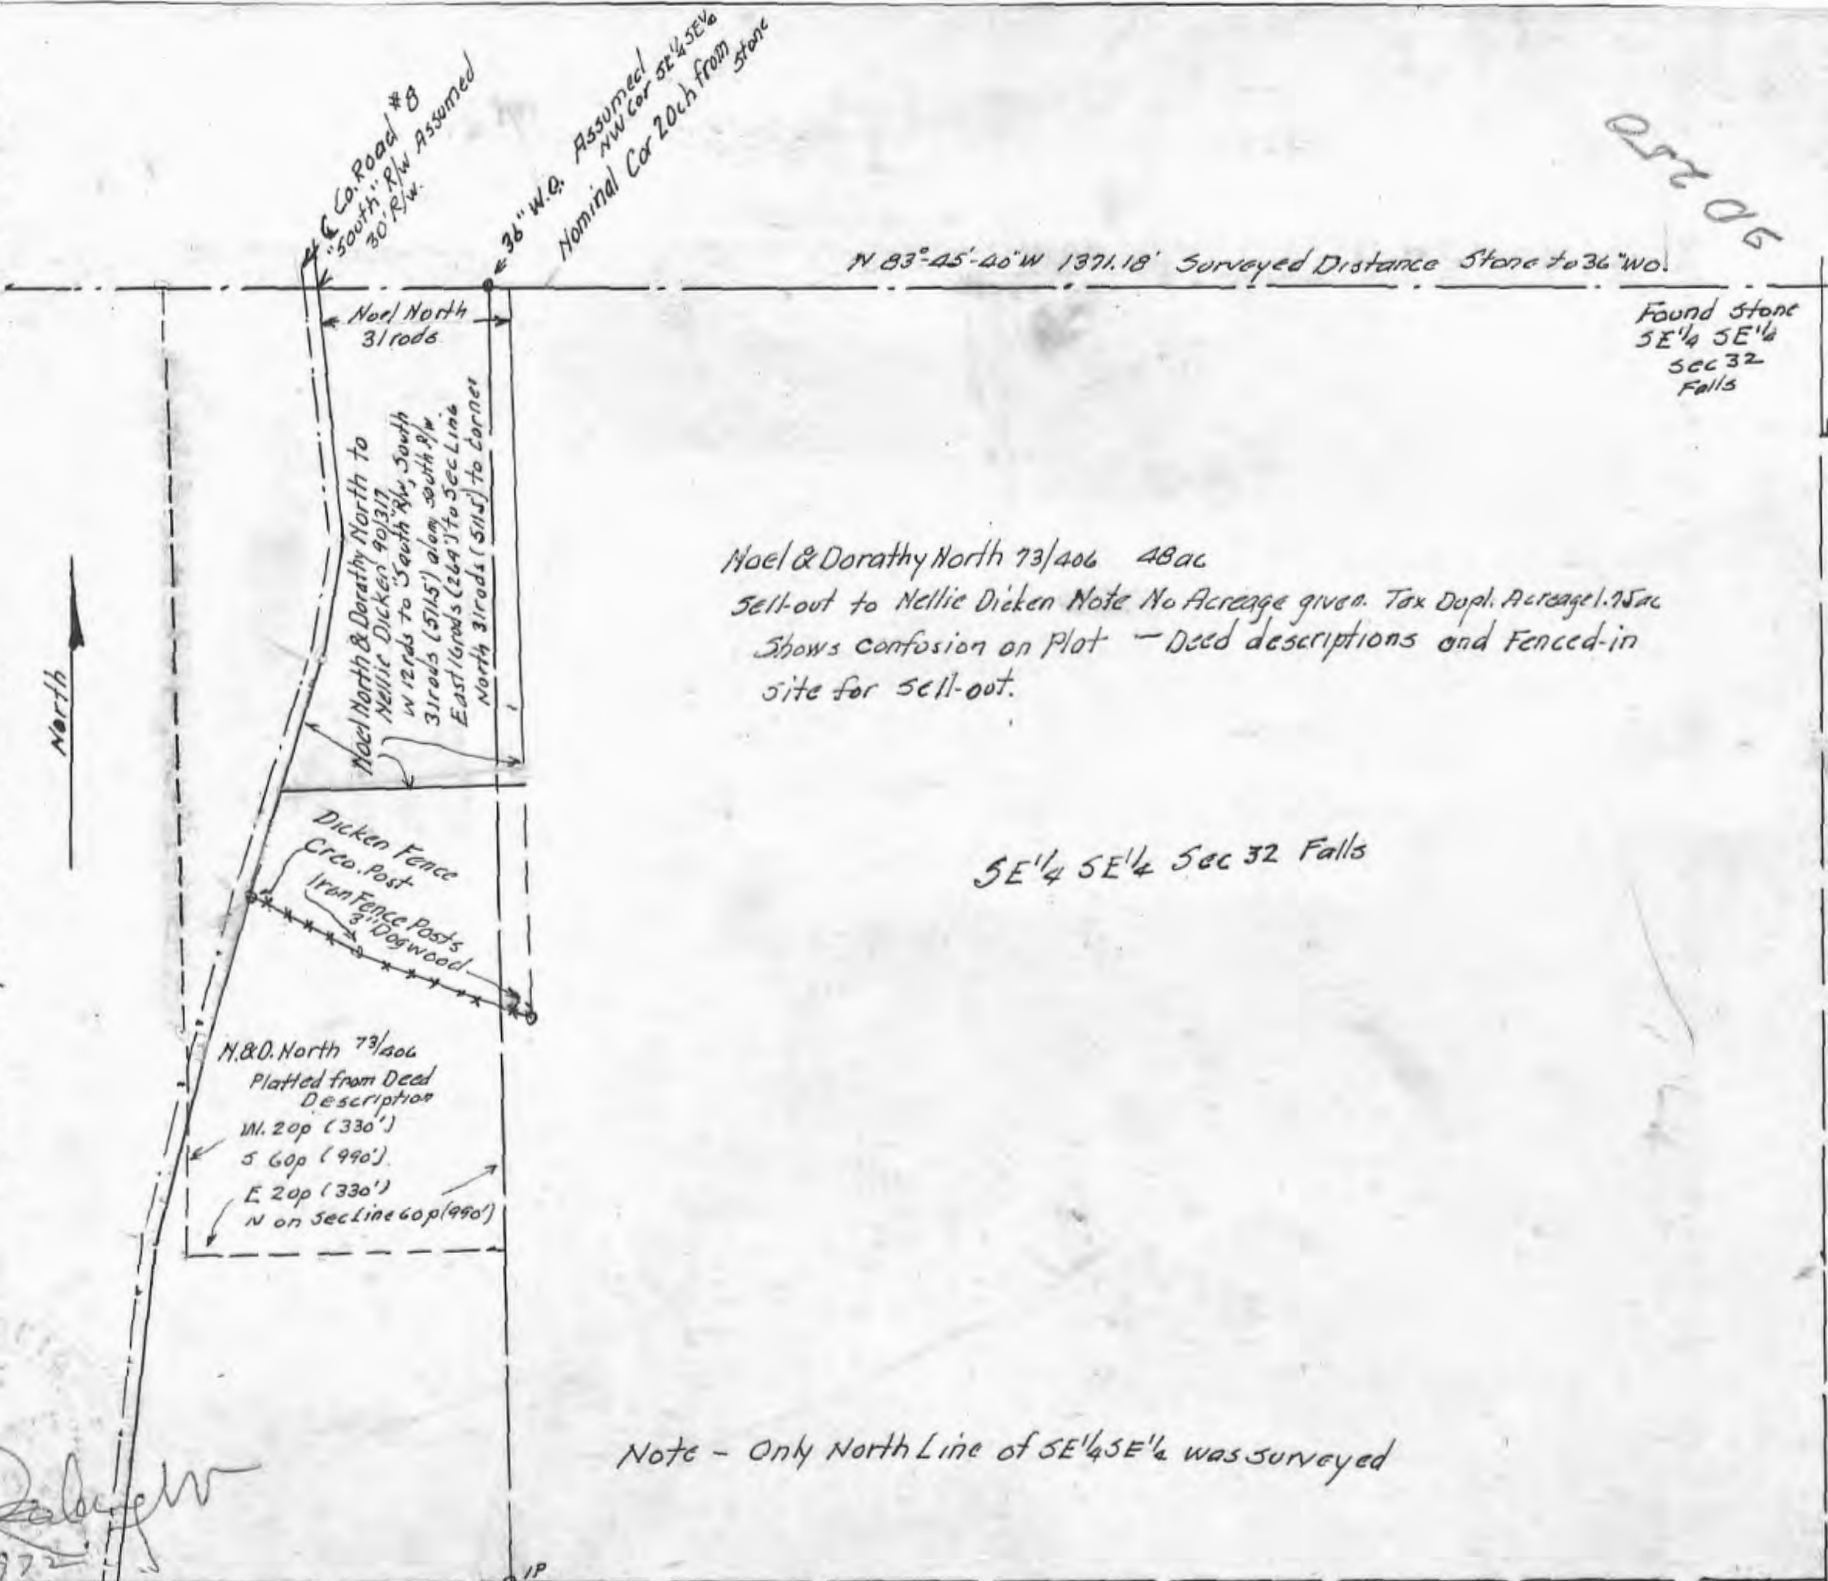 ℄ Co. Road #8
"South" R/W Assumed
30' R/W.
36" W.O. Assumed
NW Cor SE¼ SE¼
Nominal Cor 20ch from
Stone
N 83°-45'-40" W 1371.18' Surveyed Distance Stone to 36" WO.
Found Stone
SE¼ SE¼
Sec 32
Falls
Noel North
31 rods
Noel North & Dorathy North to
Nellie Dicken 90/317
W 12 rds to "South" R/W, South
31 rods (511.5') along south R/W
East 16 rods (264') to Sec Line
North 31 rods (511.5') to Corner
North
Noel & Dorathy North 73/406 48ac
Sell-out to Nellie Dicken Note No Acreage given. Tax Dupl. Acreage 1.75ac
Shows confusion on Plat — Deed descriptions and Fenced-in
site for sell-out.
SE¼ SE¼ Sec 32 Falls
Dicken Fence
Creo. Post
Iron Fence Posts
3" Dogwood
N.&D. North 73/406
Platted from Deed
Description
W. 20p (330')
S 60p (990')
E 20p (330')
N on Sec Line 60p (990')
Note - Only North Line of SE¼ SE¼ was surveyed
IP